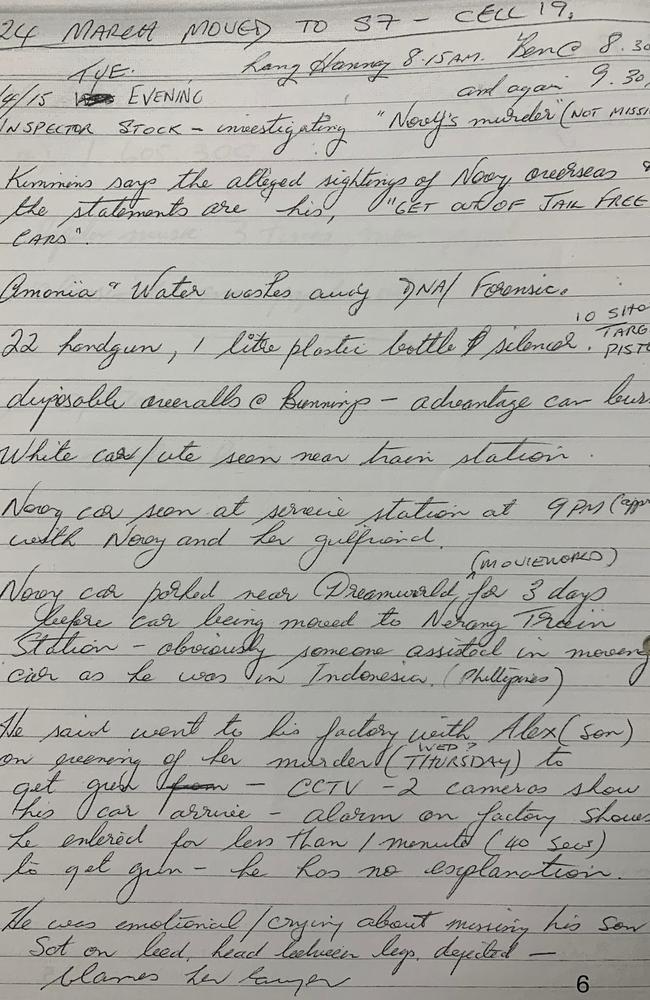 24 MARCH MOVED TO S7 - CELL 19.
Lang Hannay 8.15AM. Ben @ 8.30
TUE.
/4/15 EVENING and again 9.30,
INSPECTOR STOCK - investigating "Novy's murder" (NOT MISSI
Kimmins says the alleged sightings of Novy overseas &
the statements are his, "GET OUT OF JAIL FREE
CARS".
Amonia & Water washes away DNA/ Forensic.
22 handgun, 1 litre plastic bottle silencer. 10 SHO
TARG
PISTO
disposable overalls @ Bunnings - advantage can burn
White car/ute seen near train station.
Novy car seen at service station at 9PM (app
with Novy and her gulfriend.
(MOVIEWORLD)
Novy car parked near Dreamworld, for 3 days
before car being moved to Nerang Train
Station - obviously someone assisted in moving
car as he was in Indonesia. (Phillipines)
He said went to his factory with Alex (son)
WED?
on evening of her murder (THURSDAY) to
get gun from - CCTV - 2 cameras show
his car arrive - alarm on factory shows
he entered for less than 1 menute (40 secs)
to get gun - he has no explanation.
He was emotional/crying about missing his son
Sat on bed, head between legs, dejected -
blames her lawyer
6